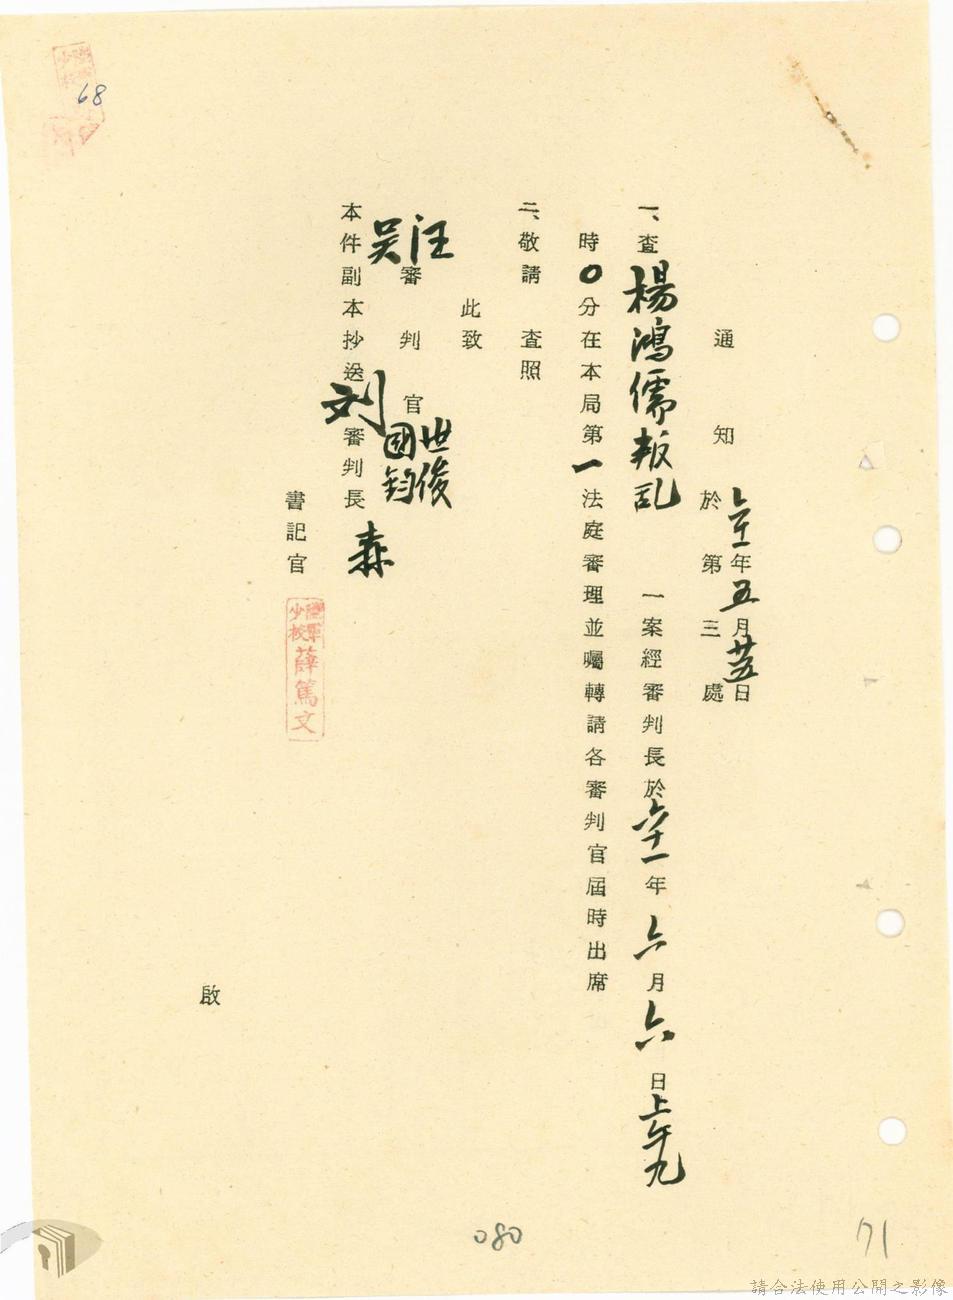 通知
六十一年五月廿五日
於第三處
一、查楊鴻儒叛乱一案經審判長於六十一年六月六日上午九
時0分在本局第一法庭審理並囑轉請各審判官屆時出席
二、敬請 查照
此致
汪世俊
吴國鈞
審判官
本件副本抄送刘審判長森
書記官
陸軍少校
薛篤文
啟
68
080
71
請合法使用公開之影像